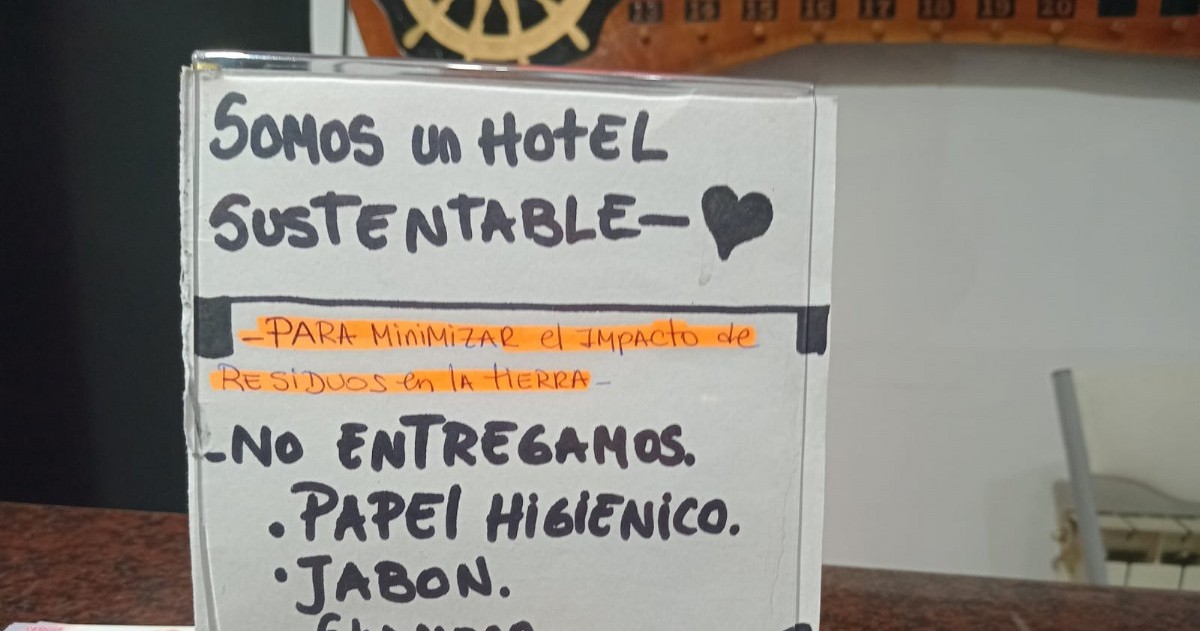 13 14 15 16 17 18 19 20
SOMOS un HOtEL
SUSTENTABLE-
-PARA MiniMiZAR el IMPActo de
RESiDUOS en lA tiERRA-
-NO ENTREGAMOS.
.PAPEl HiGiENiCO.
·JABON.